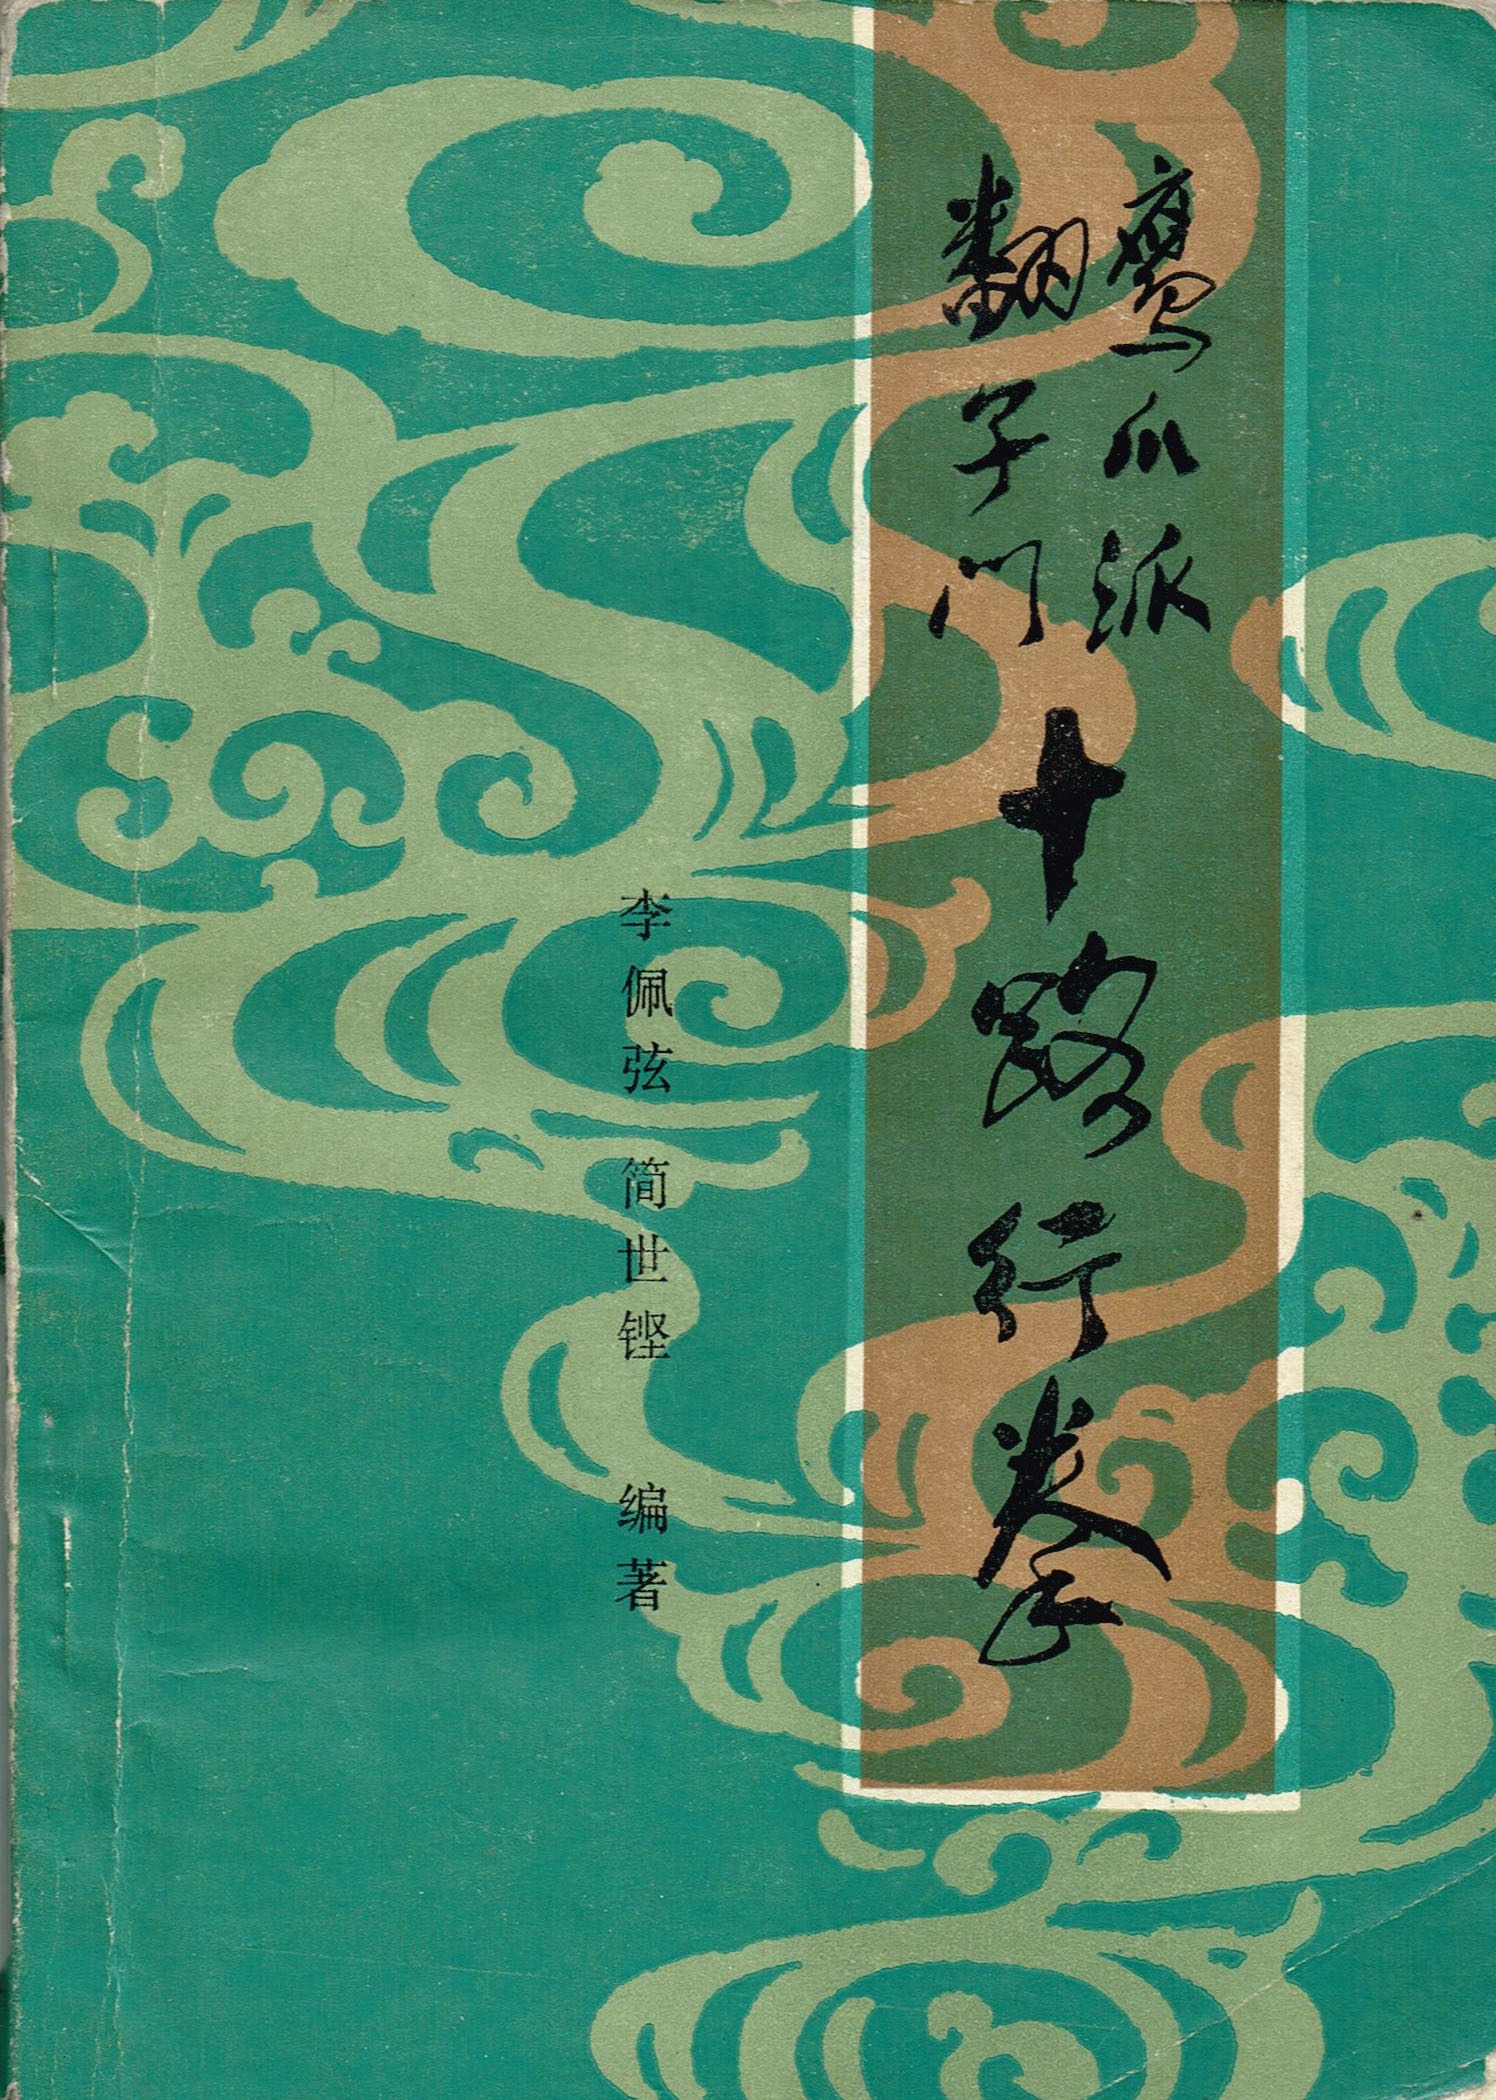 鹰爪派
翻子门
十路行拳
李佩弦 简世铿 编著